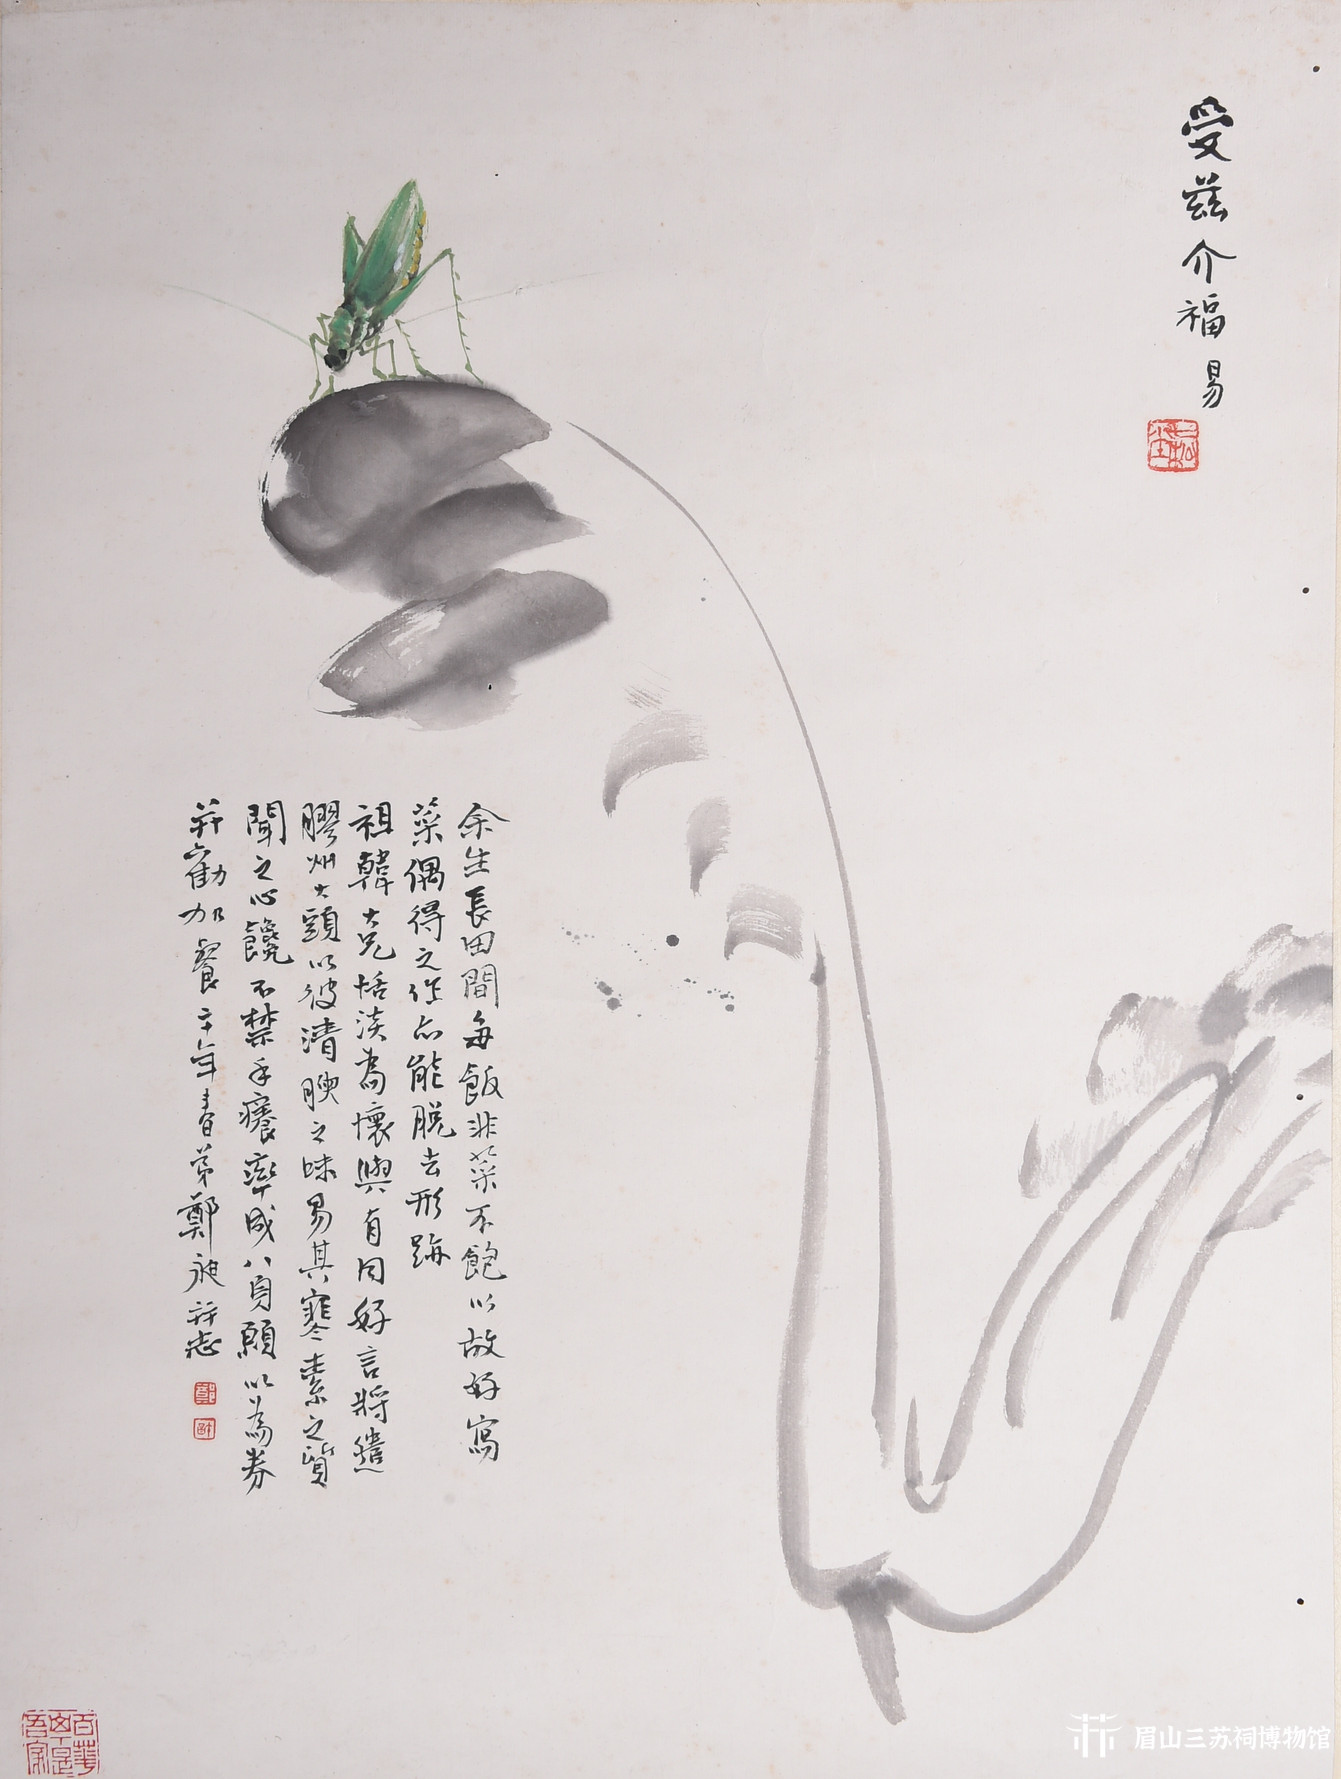 受茲介福 易
余生長田間每飯非菜不飽以故好寫
菜偶得之作亦能脱去形跡
祖韓大兄恬淡為懷與有同好言將遣
膠州大頭以彼清腴之味易其寒素之質
聞之心饞不禁手癢率成八頁願以為券
并勸加餐二十年春弟鄭昶并志
鄭
百華西是吾家
眉山三苏祠博物馆